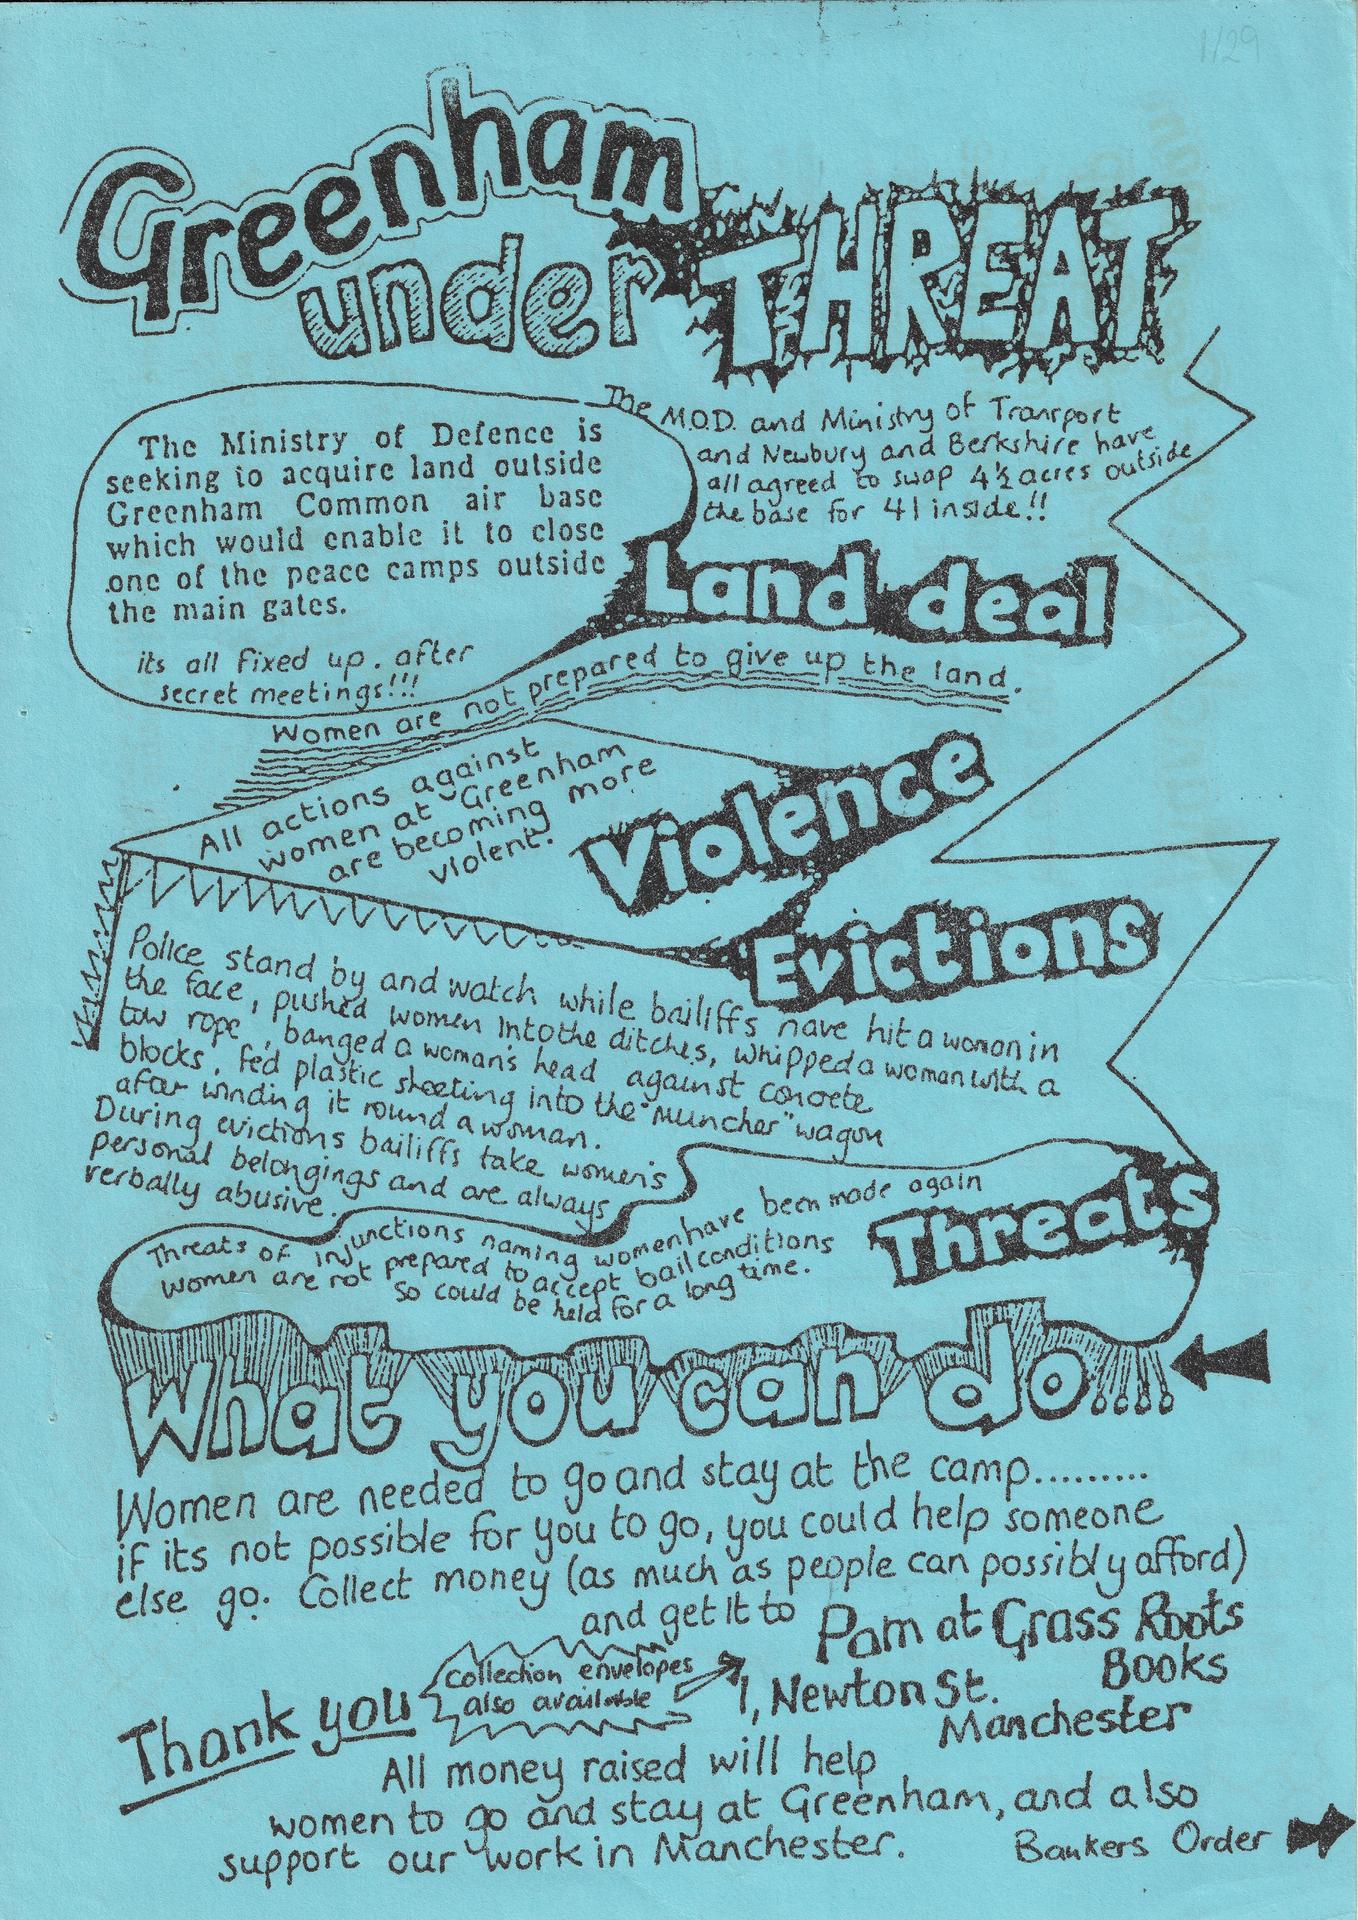 1/29
Greenham
under THREAT
The Ministry of Defence is
seeking to acquire land outside
Greenham Common air base
which would enable it to close
one of the peace camps outside
the main gates.
its all fixed up. after
secret meetings!!!
The M.O.D. and Ministry of Transport
and Newbury and Berkshire have
all agreed to swap 4½ acres outside
the base for 41 inside!!
Land deal
Women are not prepared to give up the land.
All actions against
women at Greenham
are becoming more
violent.
Violence
Evictions
Police stand by and watch while bailiffs have hit a woman in
the face, pushed women into the ditches, whipped a woman with a
tow rope, banged a woman's head against concrete
blocks, fed plastic sheeting into the "muncher" wagon
after winding it round a woman.
During evictions bailiffs take women's
personal belongings and are always
verbally abusive.
Threats of injunctions naming women have been made again
women are not prepared to accept bail conditions
so could be held for a long time.
Threats
What you can do....
Women are needed to go and stay at the camp.........
if its not possible for you to go, you could help someone
else go. Collect money (as much as people can possibly afford)
and get it to Pam at Grass Roots
Books
1, Newton St.
Manchester
collection envelopes
also available
Thank you
All money raised will help
women to go and stay at Greenham, and also
support our work in Manchester.
Bankers Order